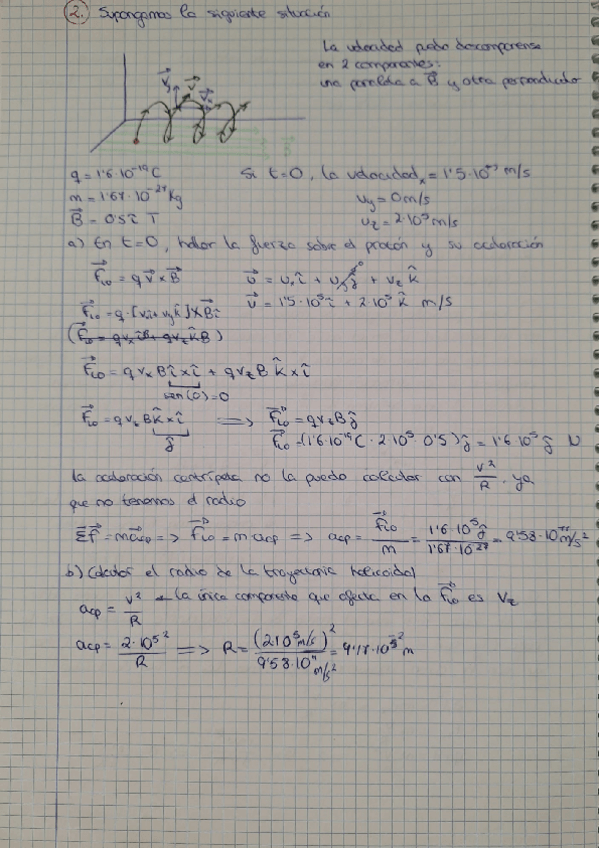 2. Supongamos la siguiente situación
La velocidad puede descomponerse
en 2 componentes:
una paralela a B⃗ y otra perpendicular
v⃗y v⃗ v⃗x
B⃗
q = 1'6·10⁻¹⁹ C
Si t=0, la velocidadₓ = 1'5·10⁵ m/s
m = 1'67·10⁻²⁷ kg
vy = 0 m/s
B⃗ = 0'5 î T
vz = 2·10⁵ m/s
a) En t=0, hallar la fuerza sobre el protón y su aceleración
F⃗LO = q v⃗ × B⃗
v⃗ = vₓ î + vy ĵ + vz k̂
F⃗LO = q·[vₓ î + vz k̂] × B î
v⃗ = 1'5·10⁵ î + 2·10⁵ k̂ m/s
F⃗LO = q vₓ B î × î + q vz B k̂ × î
sen(0)=0
F⃗LO = q vz B k̂ × î ⟹ F⃗LO = q vz B ĵ
ĵ
F⃗LO = (1'6·10⁻¹⁹ C · 2·10⁵ · 0'5) ĵ = 1'6·10⁵ ĵ N
La aceleración centrípeta no la puedo calcular con v²/R, ya
que no tenemos el radio
ΣF⃗ = m a⃗cp => F⃗LO = m acp => acp = F⃗LO/m = 1'6·10⁵ ĵ / 1'67·10⁻²⁷ = 9'58·10¹¹ m/s²
b) Calcular el radio de la trayectoria helicoidal
acp = v²/R la única componente que afecta en la F⃗LO es vz
acp = 2·10⁵² / R => R = (2·10⁵ m/s)² / 9'58·10¹¹ m/s² = 4'17·10⁻² m